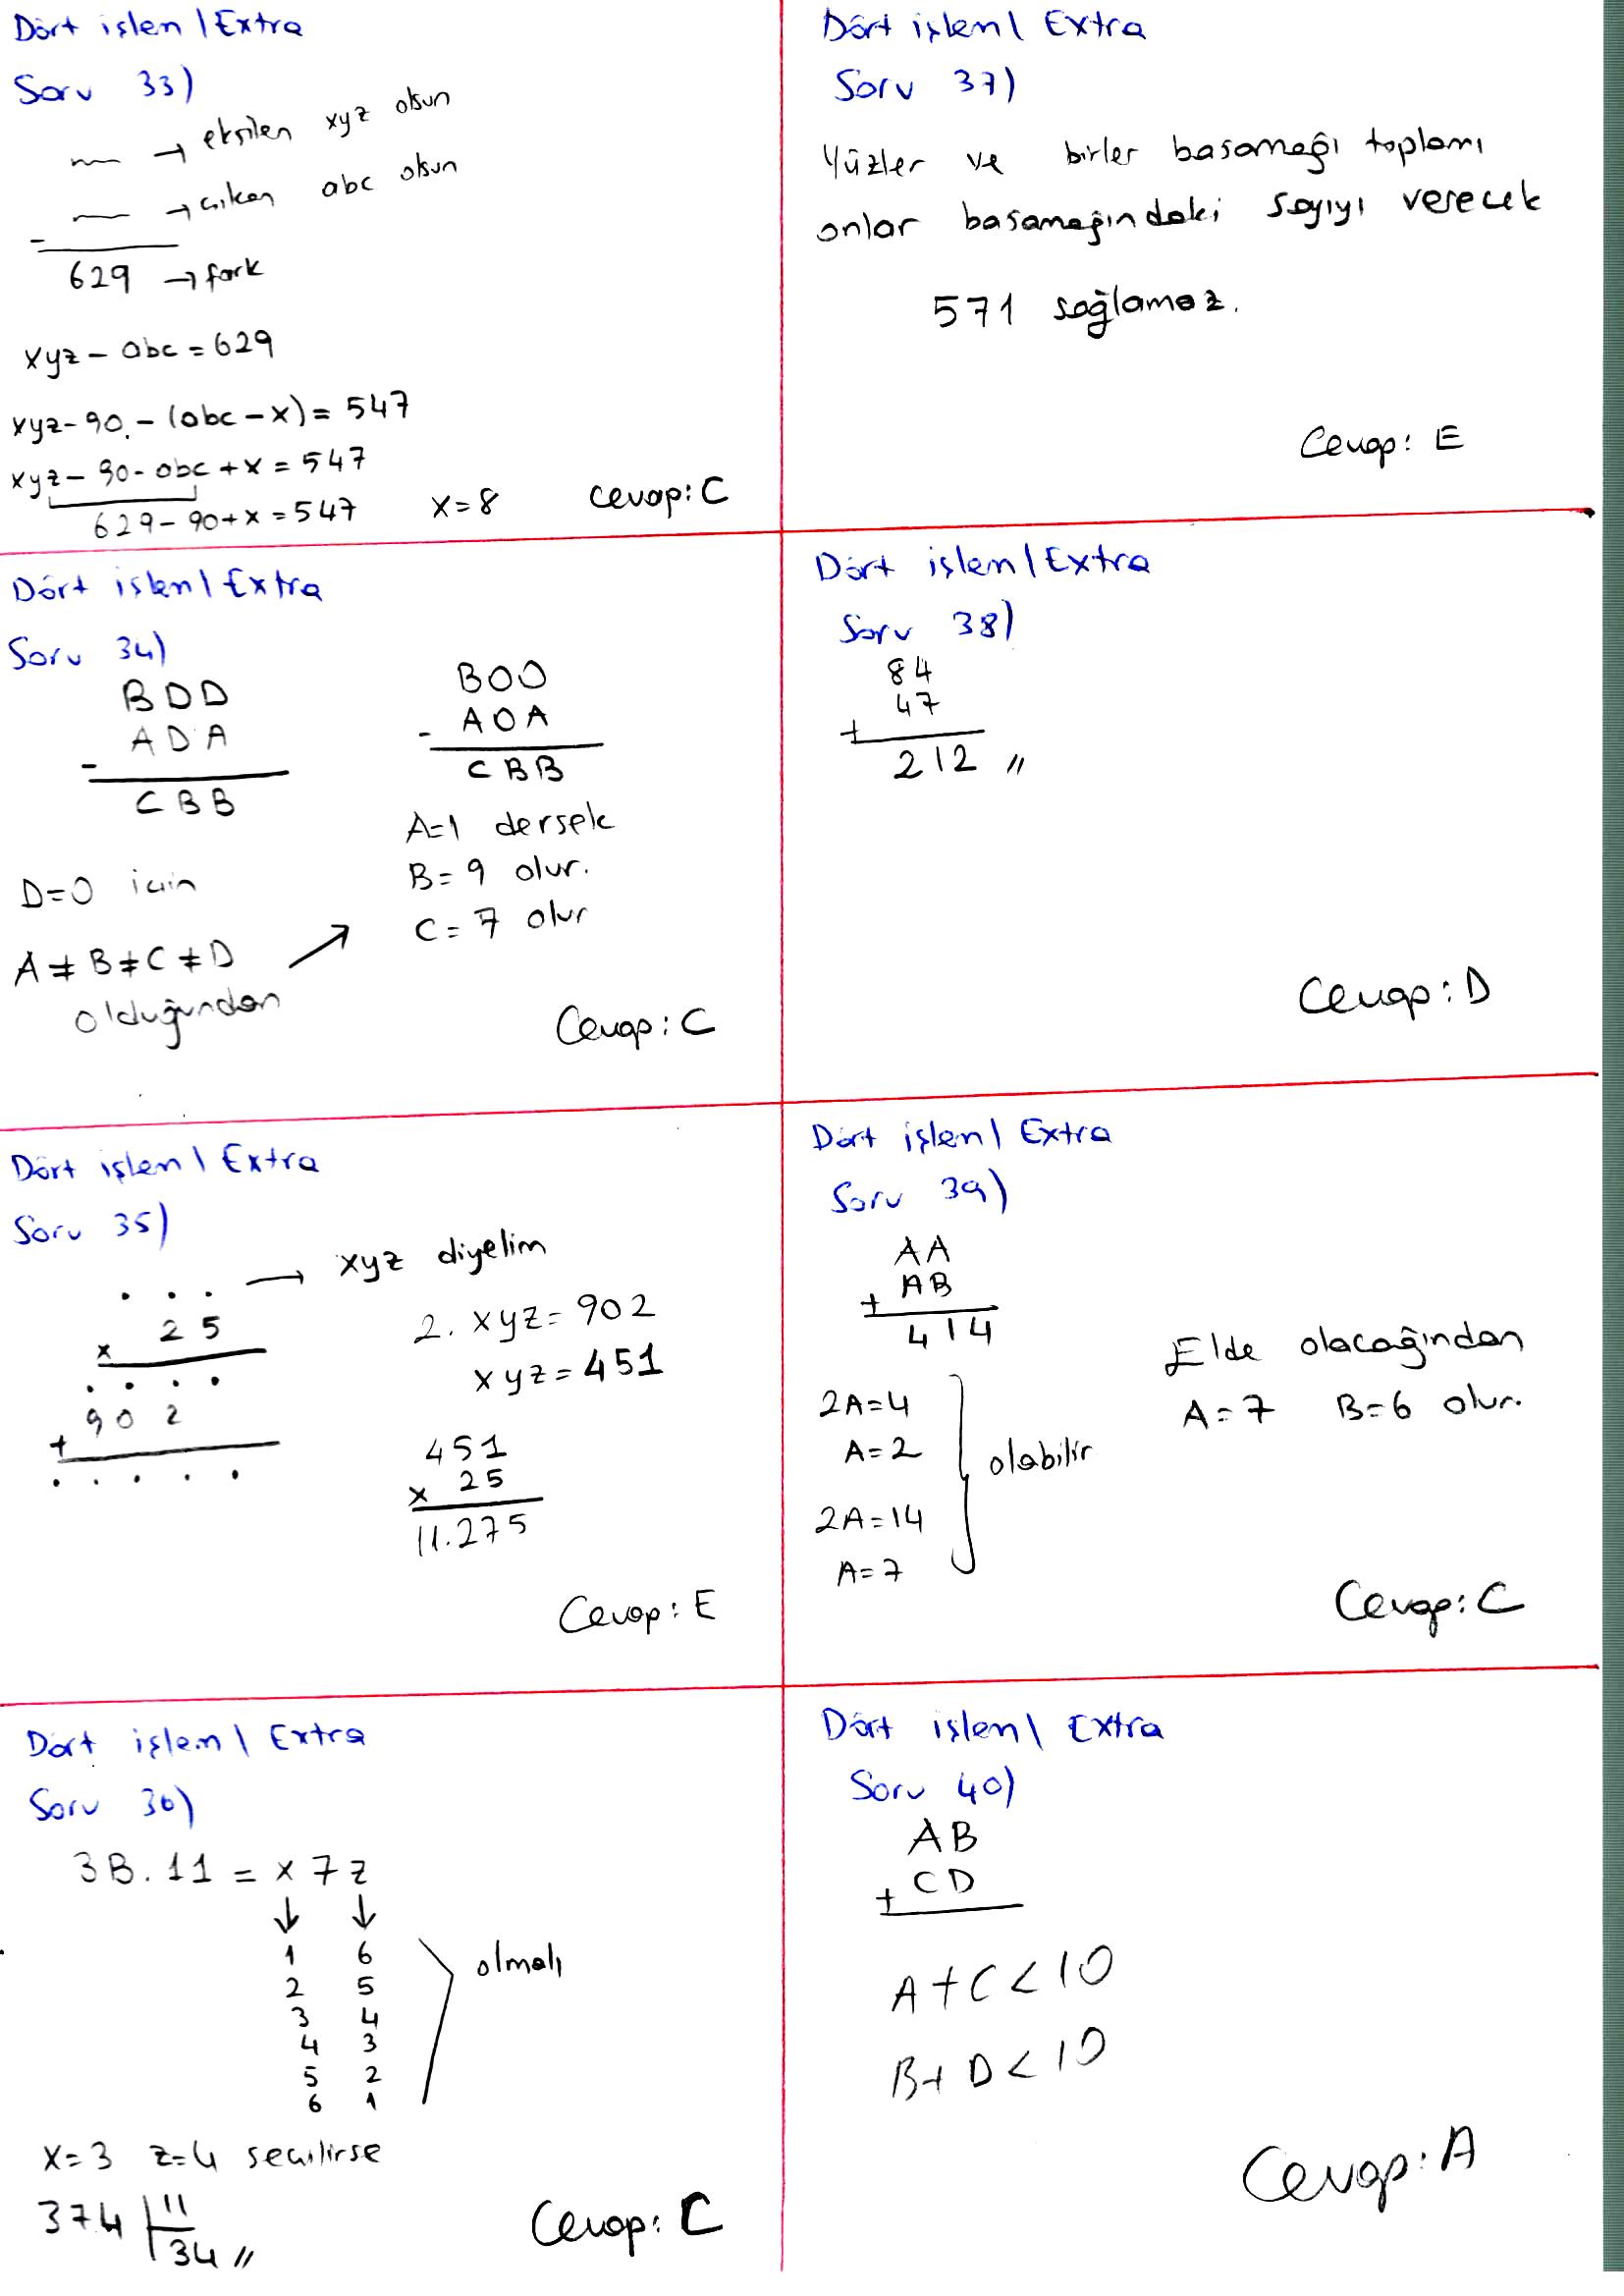 Dört işlem | Extra
Soru 33)
→ eksilen xyz olsun
→ çıkan abc olsun
-
629 → fark
xyz - abc = 629
xyz-90.-(abc-x)=547
xyz-90-abc+x=547
629-90+x=547 x=8 cevap: C
Dört işlem | Extra
Soru 34)
BDD
ADA
-
CBB
D=0 için
A≠B≠C≠D
olduğundan
B00
A0A
-
CBB
A=1 dersek
B=9 olur.
C=7 olur
Cevap: C
Dört işlem | Extra
Soru 35)
. . . → xyz diyelim
25
x
. . . .
902
+
. . . . .
2.xyz=902
xyz=451
451
x 25
11.275
Cevap: E
Dört işlem | Extra
Soru 36)
3B.11 = x7z
↓ ↓
1 6
2 5
3 4
4 3
5 2
6 1
olmalı
x=3 z=4 seçilirse
374 | 11
34 //
Cevap: C
Dört işlem | Extra
Soru 37)
Yüzler ve birler basamağı toplamı
onlar basamağındaki sayıyı verecek
571 sağlamaz.
Cevap: E
Dört işlem | Extra
Soru 38)
84
47
+
212 //
Cevap: D
Dört işlem | Extra
Soru 39)
AA
AB
+
414
2A=4
A=2
2A=14
A=7
olabilir
Elde olacağından
A=7 B=6 olur.
Cevap: C
Dört işlem | Extra
Soru 40)
AB
CD
+
A+C<10
B+D<10
Cevap: A